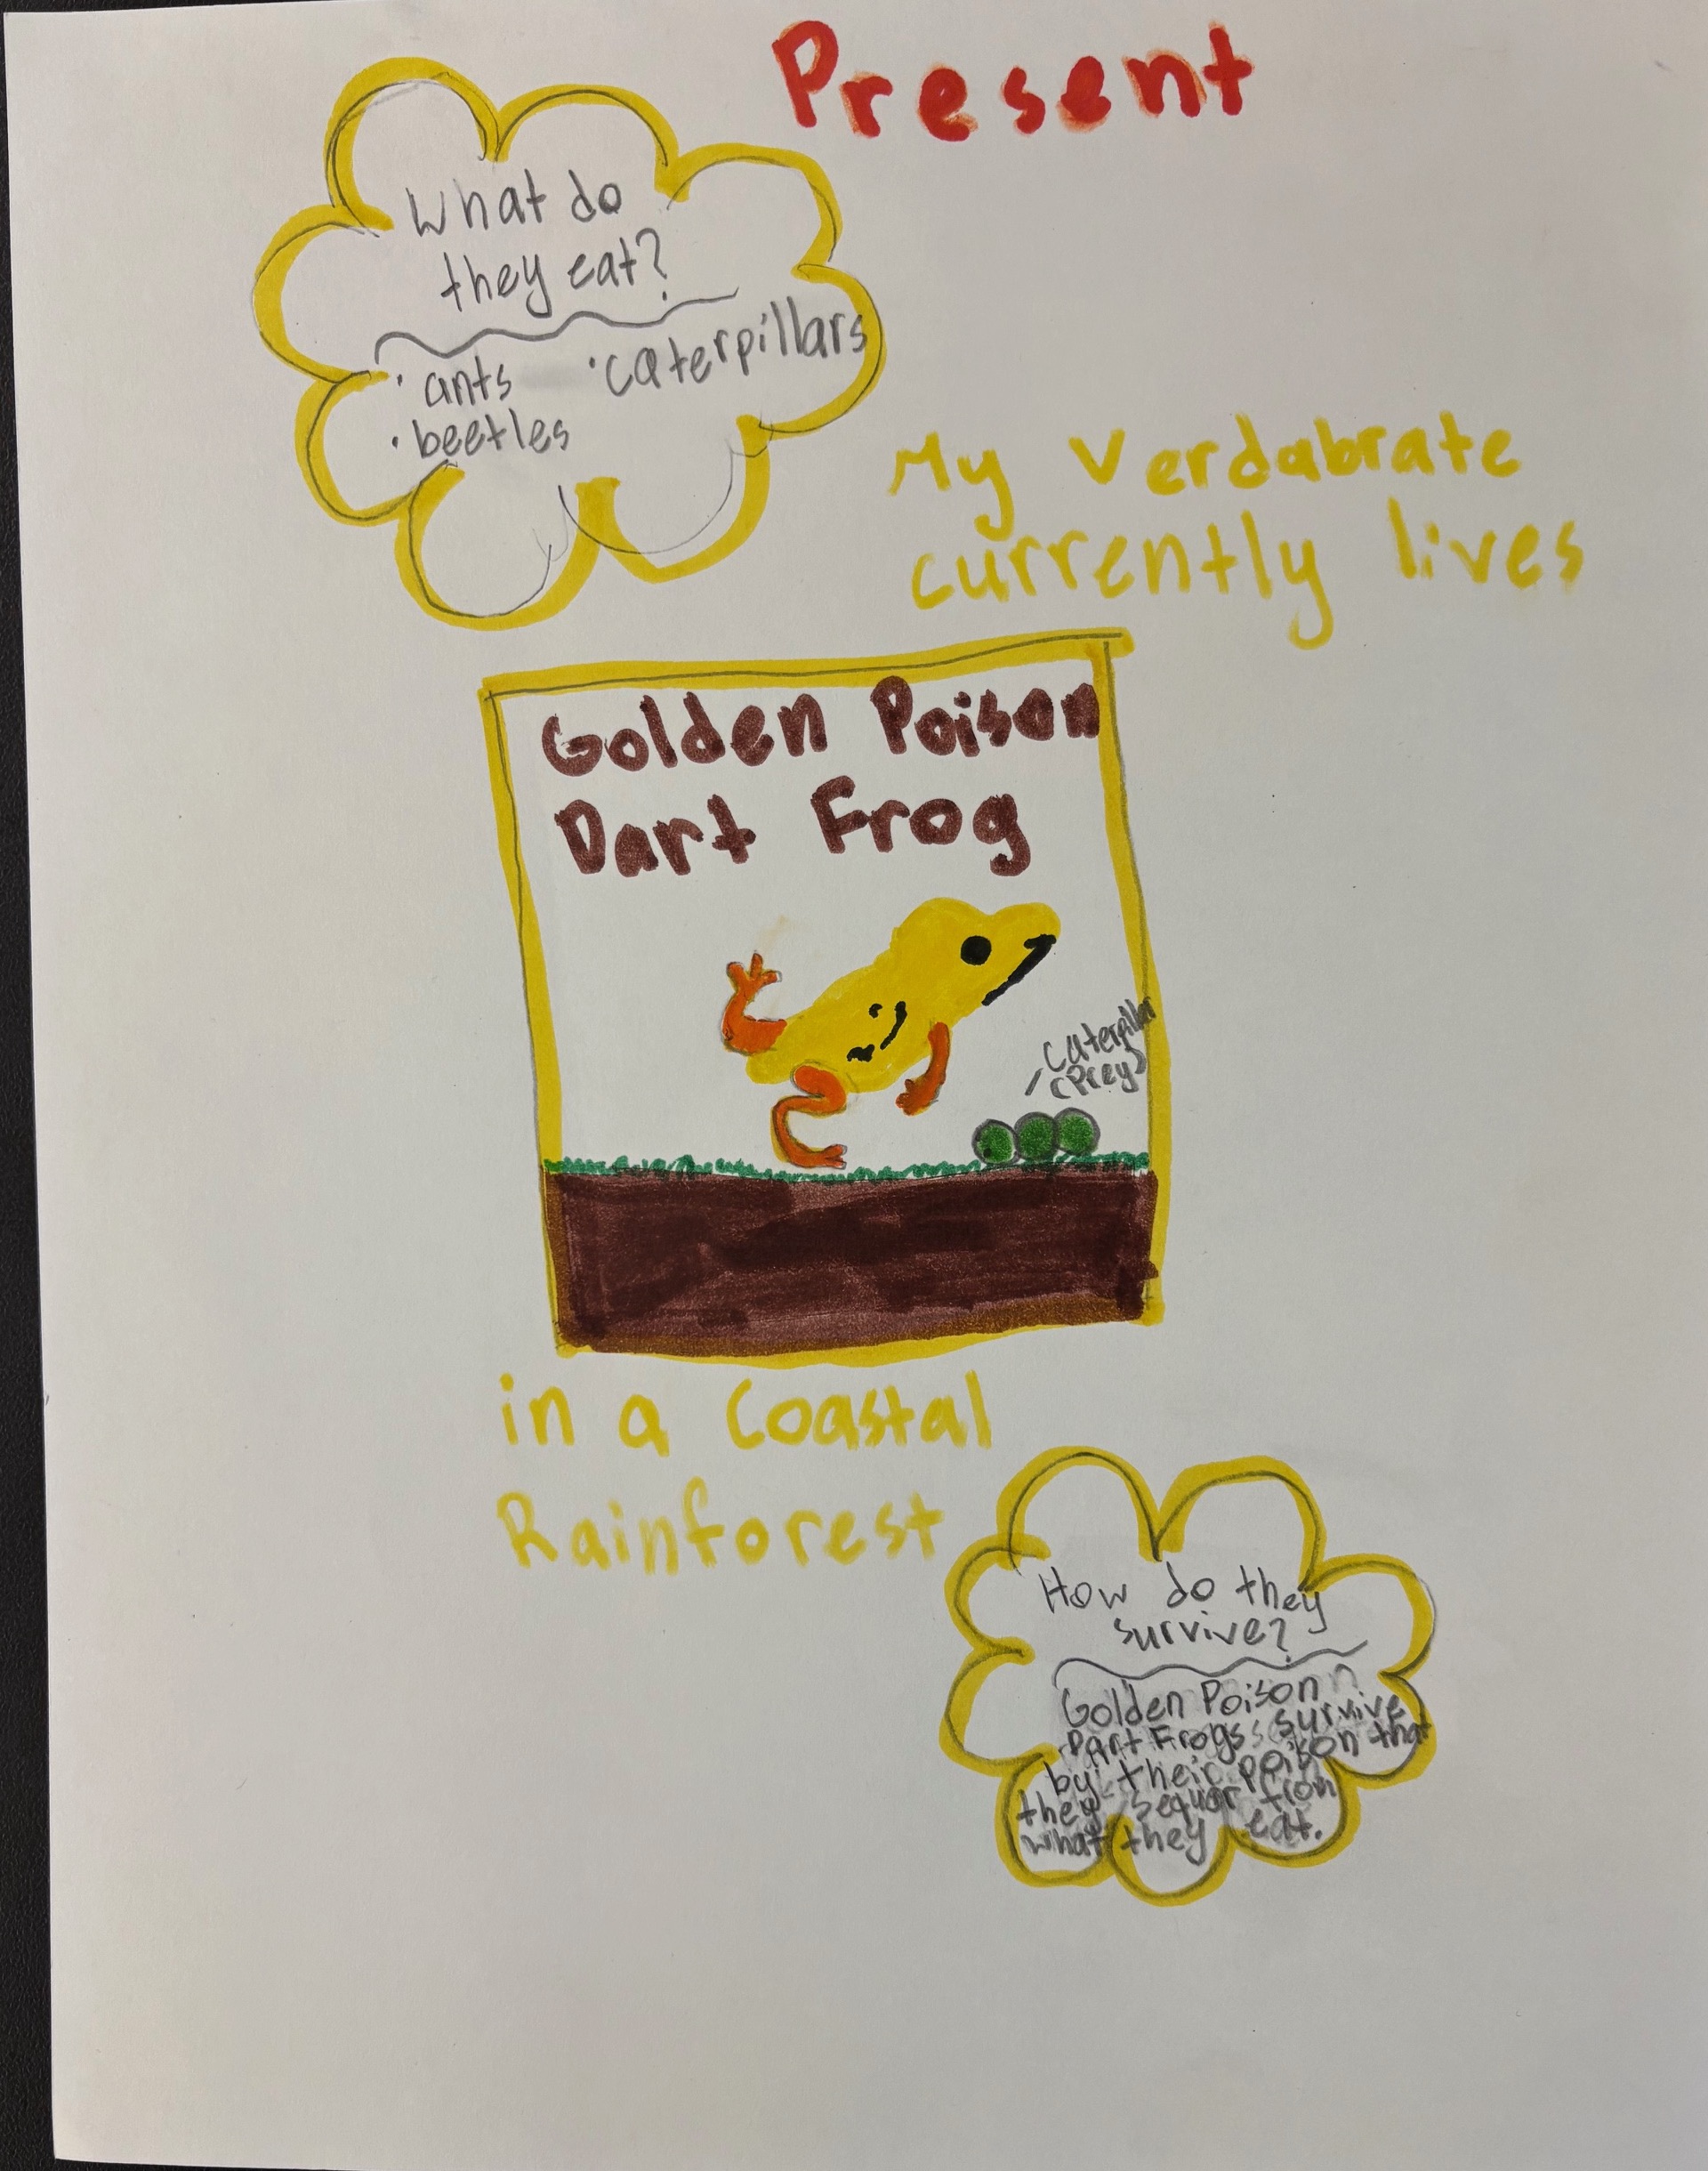 Present
What do
they eat?
· ants · caterpillars
· beetles
My Verdabrate
currently lives
Golden Poison
Dart Frog
Caterpillar
(Prey)
in a Coastal
Rainforest
How do they
survive?
Golden Poison
Dart Frogs survive
by their poison that
they sequor from
what they eat.